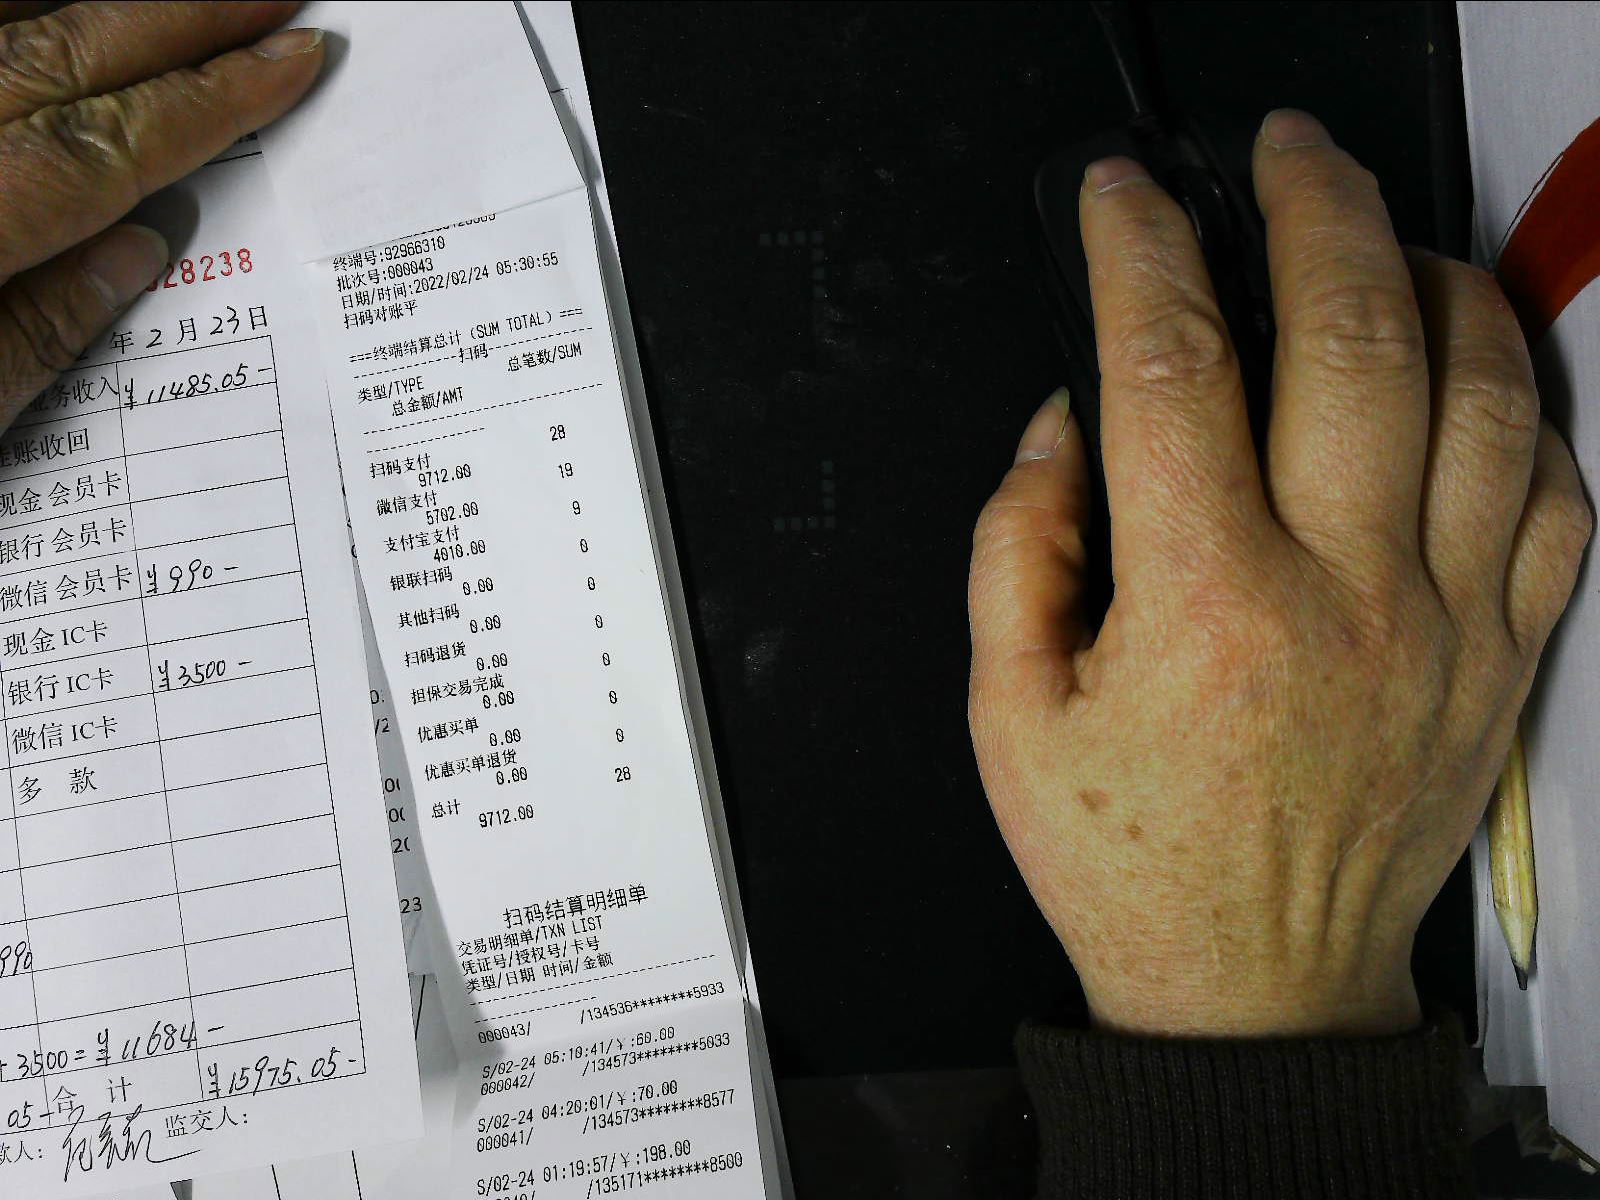 28238
年 2 月 23 日
业务收入 ¥11485.05-
账收回
现金会员卡
银行会员卡
微信会员卡 ¥990-
现金IC卡
银行IC卡 ¥3500-
微信IC卡
多 款
990
+3500=¥11684-
合 计 ¥15975.05-
05-
款人: 监交人:
终端号:92966310
批次号:000043
日期/时间:2022/02/24 05:30:55
扫码对账平
===终端结算总计(SUM TOTAL)===
----------扫码----------
类型/TYPE 总笔数/SUM
总金额/AMT
扫码支付 28
9712.00
微信支付 19
5702.00
支付宝支付 9
4010.00
银联扫码 0
0.00
其他扫码 0
0.00
扫码退货 0
0.00
担保交易完成 0
0.00
优惠买单 0
0.00
优惠买单退货 0
0.00
总计 28
9712.00
扫码结算明细单
交易明细单/TXN LIST
凭证号/授权号/卡号
类型/日期 时间/金额
000043/ /134536********5933
S/02-24 05:10:41/¥:60.00
000042/ /134573********5033
S/02-24 04:20:01/¥:70.00
000041/ /134573********8577
S/02-24 01:19:57/¥:198.00
/135171********8500
23